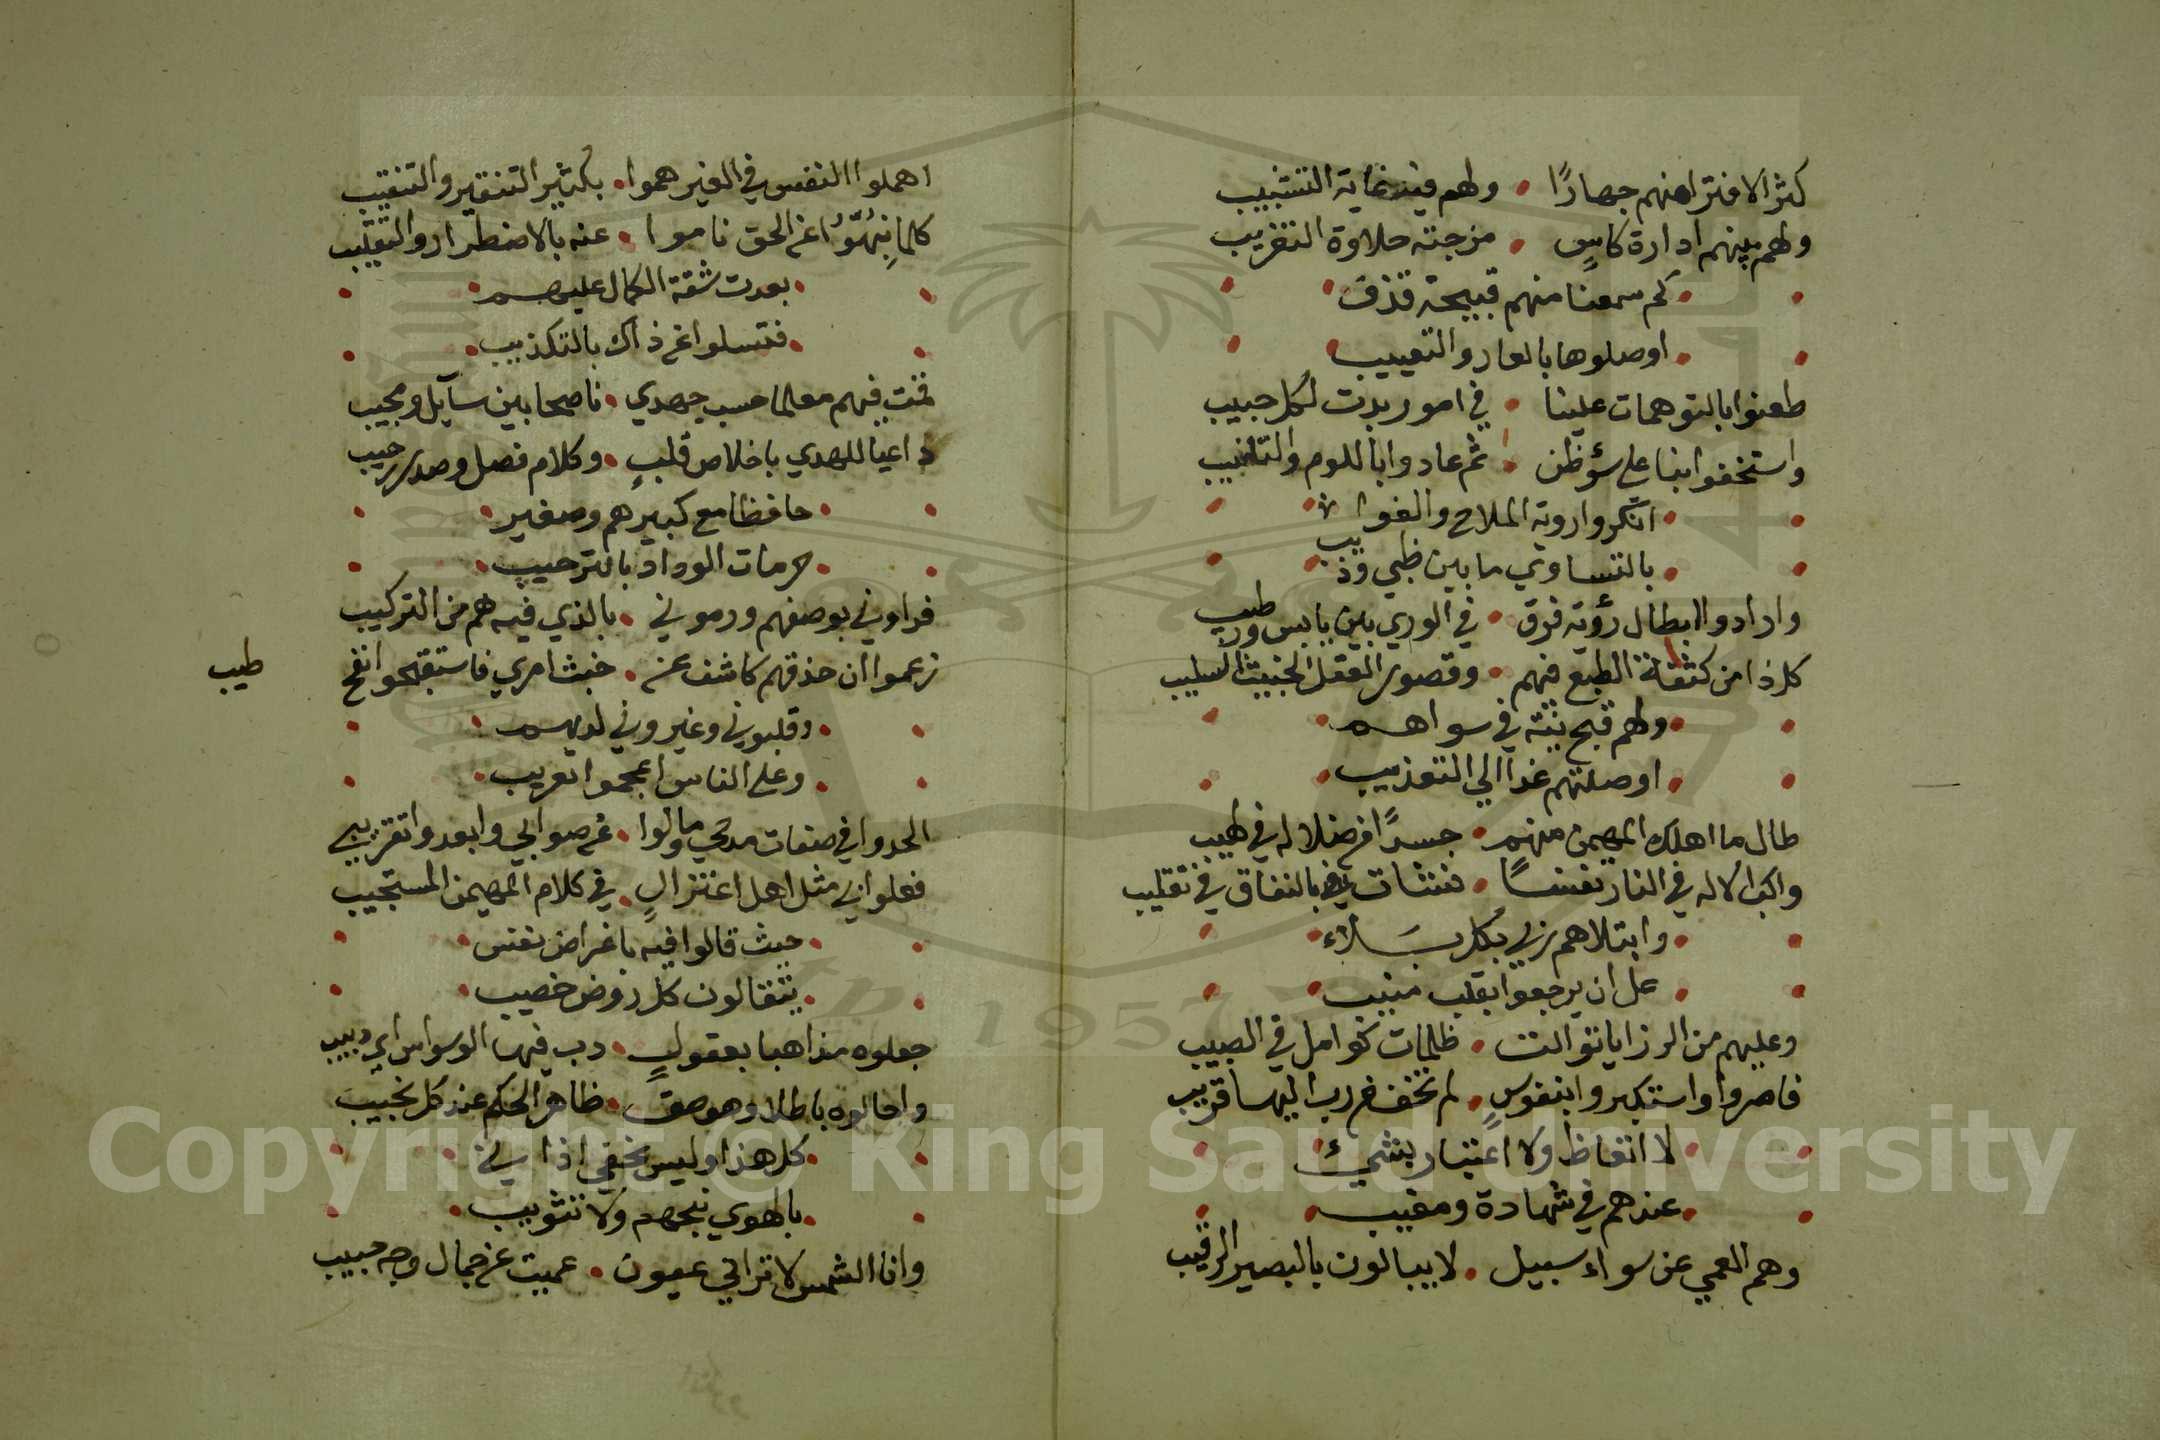 كثر الافترا منهم جهارًا ولهم فيه غاية التشبيب
ولهم بينهم ادارة كاسٍ مزجته حلاوة التغريب
كم سمعنا منهم قبيحة قذف
اوصلوها بالعار والتعييب
طعنوا بالتوهمات علينا في امور بدت لكل حبيب
واستخفوا بنا على سؤ ظن ثم عادوا باللوم والتانيب
انكروا روية الملاح والغوا
بالتساوي ما بين ظبي وذيب
وارادوا ابطال رؤية فرق في الوري بين يابس ورطيب
كل ذا من كثافة الطبع فيهم وقصور العقل الخبيث السليب
ولهم قبح نية في سواهم
اوصلتهم غدا الي التعذيب
طال ما اهلك المهيمن منهم جسدًا في ضلاله في لهيب
واكب الاله في النار نفسًا نشات بالنفاق في تقليب
وابتلاهم ربي بكل بَلاء
عل ان يرجعوا بقلب منيب
وعليهم من الرزايا توالت ظلمات كوامل في الصبيب
فاصروا واستكبروا بنفوسٍ لم تخف من رب اليها قريب
لا اتعاظ ولا اعتبار بشئ
عندهم في شهادة ومغيب
وهم العمي عن سواء سبيل لا يبالون بالبصير الرقيب
اهملوا النفس في الغير هموا بكثير التنقير والتنقيب
كلما نبهُّوا عن الحق ناموا عنه بالاضطرار والتقليب
بعدت شقة الكمال عليهم
فتسلوا عن ذاك بالتكذيب
قمت فيهم معلما حسب جهدي ناصحا بين سآيل ومجيب
داعيا للهدي باخلاص قلبٍ وكلام فصل وصدر رحيب
حافظا مع كبيرهم وصغير
حرمات الوداد بالترحيب
فراوني بوصفهم ورموني بالذي فيه هم من التركيب
زعموا ان حذقهم كاشف عن خبث امري فاستقبحوا نفح
طيب
وقلبوني وغيروني لديهم
وعلى الناس اعجموا تعريب
الحدوا في صفات مدحي ومالوا عن صوابي وابعدوا تقريبي
فعلوا بي مثل اهل اعتزالٍ في كلام المهيمن المستجيب
حيث قالوا فيه باغراض نفس
يتقالون كل روض خصيب
جعلوه مذاهبا بعقولٍ دب فيها الوسواس اي دبيب
واحالوه باطلا وهو حق ظاهر الحكم عند كل نجيب
كل هذا وليس يخفي اذا بي
بالهوي نبجهم ولا تثويب
وانا الشمس لا تراني عيون عميت عن جمال وجه حبيب
Copyright © King Saud University
1957